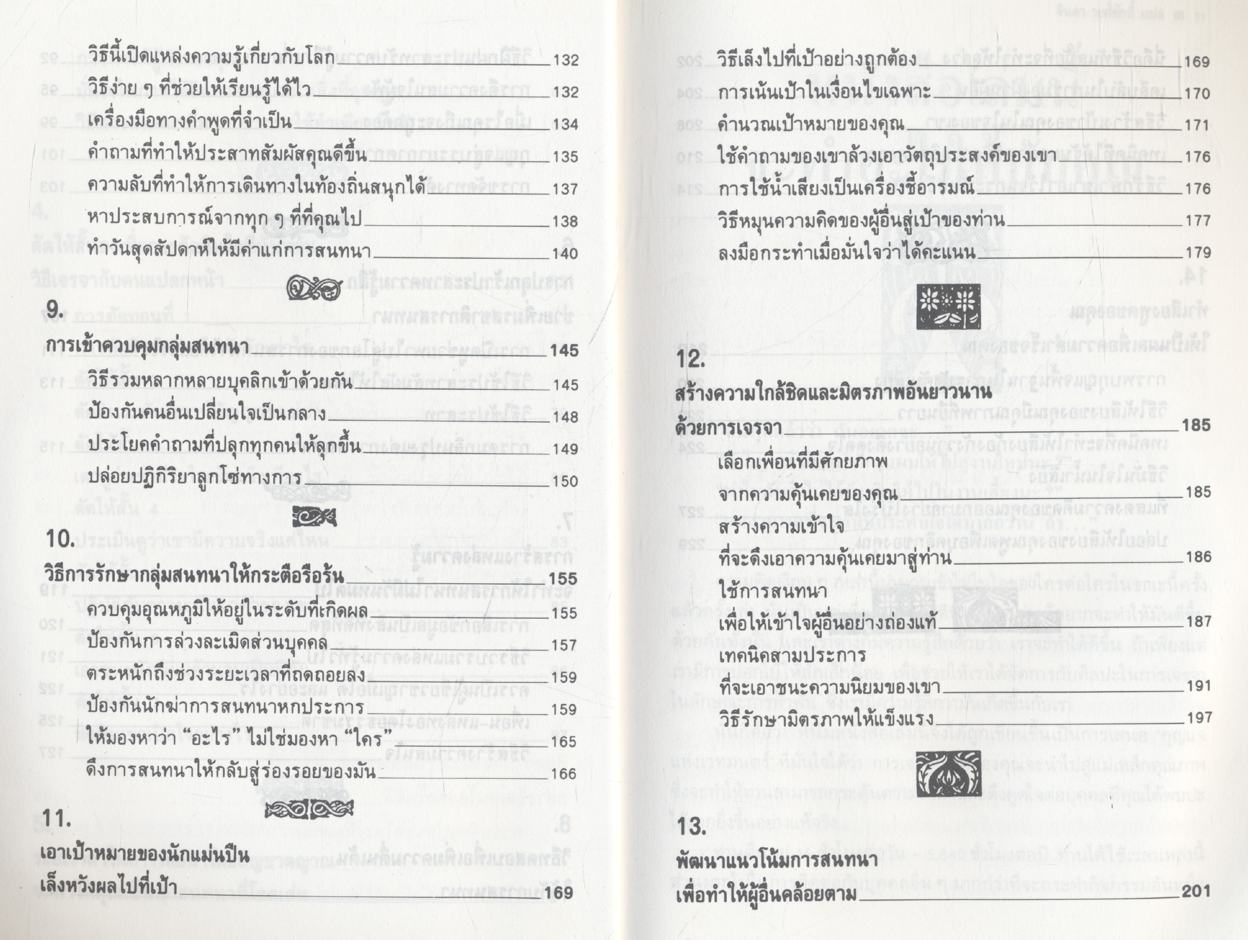 วิธีนี้เปิดแหล่งความรู้เกี่ยวกับโลก 132
วิธีง่าย ๆ ที่ช่วยให้เรียนรู้ได้ไว 132
เครื่องมือทางคำพูดที่จำเป็น 134
คำถามที่ทำให้ประสาทสัมผัสคุณดีขึ้น 135
ความลับที่ทำให้การเดินทางในท้องถิ่นสนุกได้ 137
หาประสบการณ์จากทุก ๆ ที่ที่คุณไป 138
ทำวันสุดสัปดาห์ให้มีค่าแก่การสนทนา 140
9.
การเข้าควบคุมกลุ่มสนทนา 145
วิธีรวมหลากหลายบุคลิกเข้าด้วยกัน 145
ป้องกันคนอื่นเปลี่ยนใจเป็นกลาง 148
ประโยคคำถามที่ปลุกทุกคนให้ลุกขึ้น 149
ปล่อยปฏิกิริยาลูกโซ่ทางการ 150
10.
วิธีการรักษากลุ่มสนทนาให้กระตือรือร้น 155
ควบคุมอุณหภูมิให้อยู่ในระดับที่เกิดผล 155
ป้องกันการล่วงละเมิดส่วนบุคคล 157
ตระหนักถึงช่วงระยะเวลาที่ถดถอยลง 159
ป้องกันนักฆ่าการสนทนาหกประการ 159
ให้มองหาว่า “อะไร” ไม่ใช่มองหา “ใคร” 165
ดึงการสนทนาให้กลับสู่ร่องรอยของมัน 166
11.
เอาเป้าหมายของนักแม่นปืน
เล็งหวังผลไปที่เป้า 169
วิธีเล็งไปที่เป้าอย่างถูกต้อง 169
การเน้นเป้าในเงื่อนไขเฉพาะ 170
คำนวณเป้าหมายของคุณ 171
ใช้คำถามของเขาล้วงเอาวัตถุประสงค์ของเขา 176
การใช้น้ำเสียงเป็นเครื่องชี้อารมณ์ 176
วิธีหมุนความคิดของผู้อื่นสู่เป้าของท่าน 177
ลงมือกระทำเมื่อมั่นใจว่าได้คะแนน 179
12.
สร้างความใกล้ชิดและมิตรภาพอันยาวนาน
ด้วยการเจรจา 185
เลือกเพื่อนที่มีศักยภาพ
จากความคุ้นเคยของคุณ 185
สร้างความเข้าใจ
ที่จะดึงเอาความคุ้นเคยมาสู่ท่าน 186
ใช้การสนทนา
เพื่อให้เข้าใจผู้อื่นอย่างถ่องแท้ 187
เทคนิคสามประการ
ที่จะเอาชนะความนิยมของเขา 191
วิธีรักษามิตรภาพให้แข็งแรง 197
13.
พัฒนาแนวโน้มการสนทนา
เพื่อทำให้ผู้อื่นคล้อยตาม 201